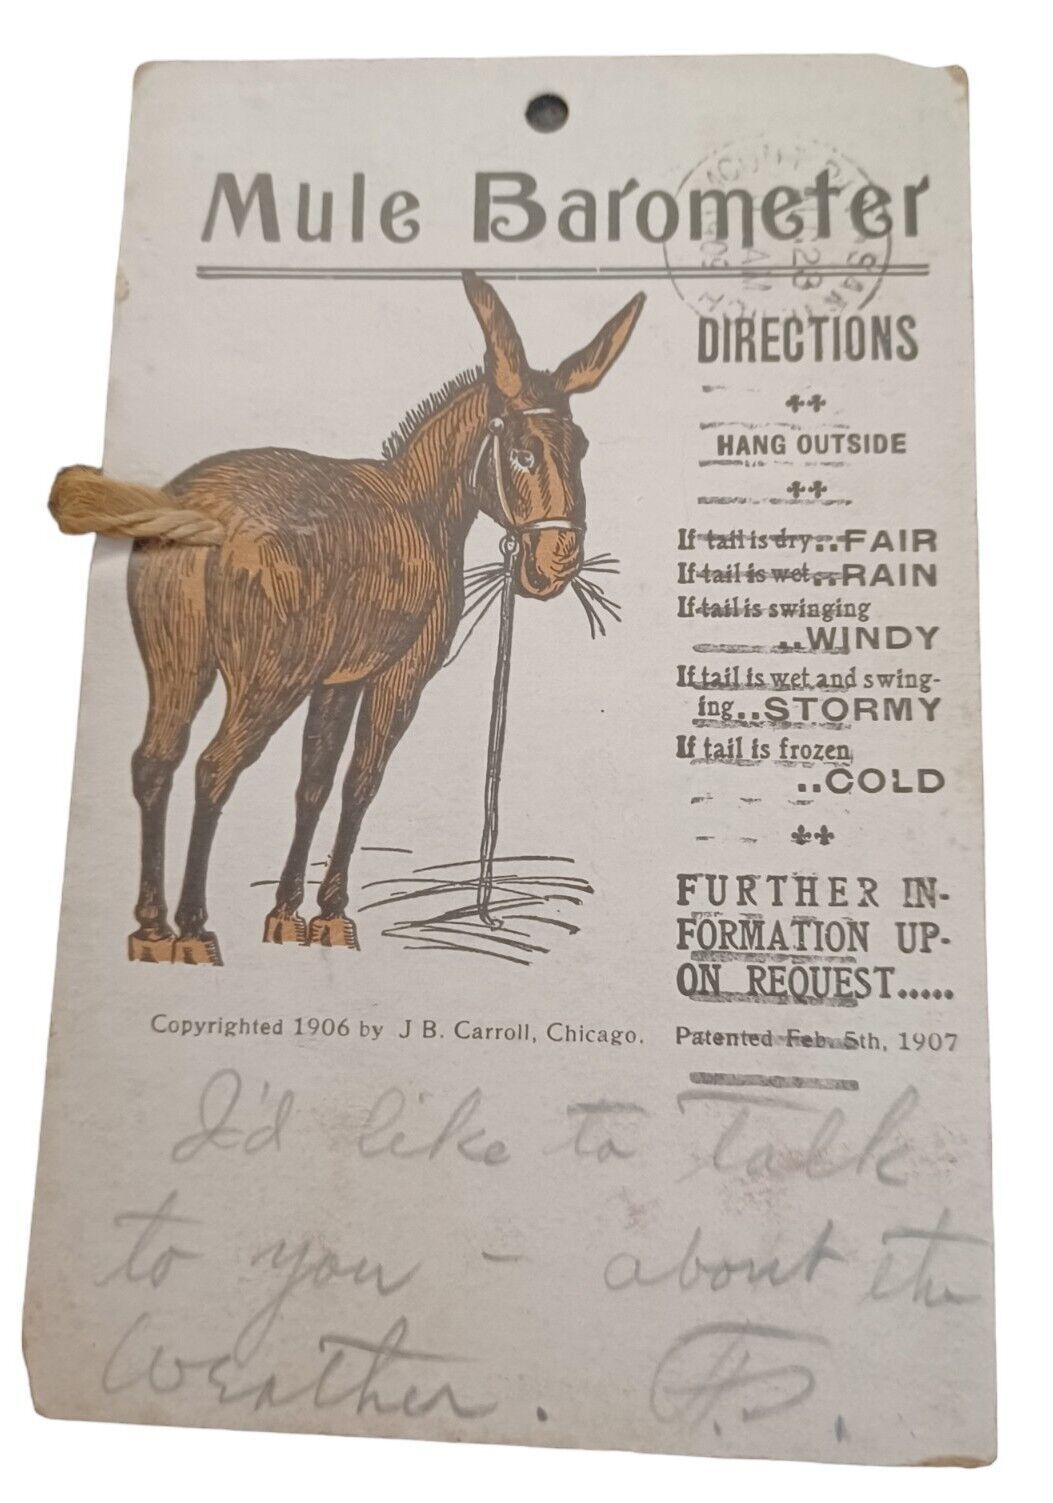 Mule Barometer
DIRECTIONS
HANG OUTSIDE
If tail is dry..FAIR
If tail is wet..RAIN
If tail is swinging
..WINDY
If tail is wet and swing-
ing..STORMY
If tail is frozen
..COLD
FURTHER IN-
FORMATION UP-
ON REQUEST.....
Copyrighted 1906 by J B. Carroll, Chicago.
Patented Feb. 5th, 1907
I'd like to talk
to you - about the
weather.
28
AM